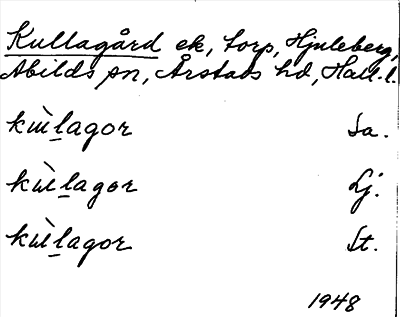 Kullagård ek, torp, Hjuleberg,
Abilds sn, Årstads hd, Hall. l.
kùlagor Sa.
kùlagor Lj.
kùlagor St.
1948